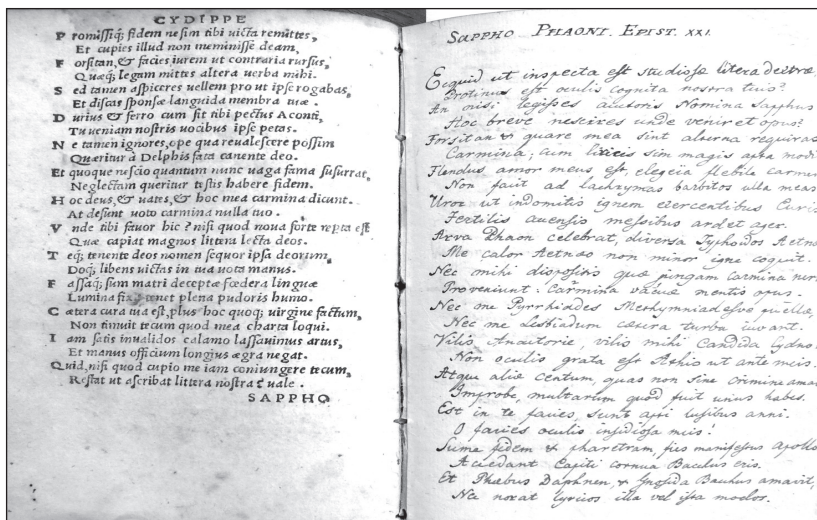 CYDIPPE
P romissiq; fidem ne sim tibi uicta remittes,
Et cupies illud non meminisse deam,
F orsitan, & facies iurem ut contraria rursus,
Quaq; legam mittes altera uerba mihi.
S ed tamen aspiceres uellem pro ut ipse rogabas,
Et discas sponsæ languida membra tuæ.
D urius & ferro cum sit tibi pectus Aconti,
Tu ueniam nostris uocibus ipse petas.
N e tamen ignores, ope qua reualescere possim
Quæritur à Delphis fata canente deo.
Et quoque nescio quantum nunc uaga fama susurrat,
Neglectam queritur testis habere fidem.
H oc deus, & uates, & hoc mea carmina dicunt.
At desunt uoto carmina nulla tuo.
V nde tibi fauor hic? nisi quod noua forte reperta est
Quæ capiat magnos littera lecta deos.
T eq; tenente deos nomen sequor ipsa deorum,
Doq; libens uictas in tua uota manus.
F assaq; sum matri deceptæ fœdera linguæ
Lumina fixa tenet plena pudoris humo.
C ætera cura tua est, plus hoc quoq; uirgine factum,
Non timuit tecum quod mea charta loqui.
I am satis inualidos calamo lassauimus artus,
Et manus officium longius ægra negat.
Quid, nisi quod cupio me iam coniungere tecum,
Restat ut ascribat littera nostra? uale.
SAPPHO
SAPPHO PHAONI. EPIST. XXI.
Ecquid ut inspecta est studiosæ litera dextræ,
Protinus est oculis cognita nostra tuis?
An nisi legisses auctoris Nomina Sapphus
Hoc breve nescires unde veniret opus?
Forsitan & quare mea sint alterna requiras
Carmina, cum lyricis sim magis apta modis
Flendus amor meus est, elegeia flebile carmen
Non facit ad lachrymas barbitos illa meas
Uror ut indomitis ignem exercentibus Euris
Fertilis accensis messibus ardet ager.
Arva Phaon celebrat, diversa Typhoidos Aetnæ
Me calor Aetnæo non minor igne coquit.
Nec mihi dispositis quæ jungam carmina ner
Proveniunt: Carmina vacuæ mentis opus.
Nec me Pyrrhiades Methymniadesve puellæ,
Nec me Lesbiadum cætera turba iuvant.
Vilis Anactorie, vilis mihi Candida Cydno
Non oculis grata est Athis ut ante meis.
Atque aliæ centum, quas non sine crimine amavi
Improbe, multarum quod fuit unus habes.
Est in te facies, sunt apti lusibus anni.
O facies oculis insidiosa meis!
Sume fidem & pharetram, fies manifestus Apollo
Accedant Capiti cornua Bacchus eris.
Et Phœbus Daphnen, & Gnosida Bacchus amavit,
Nec norat lyricos illa vel ista modos.